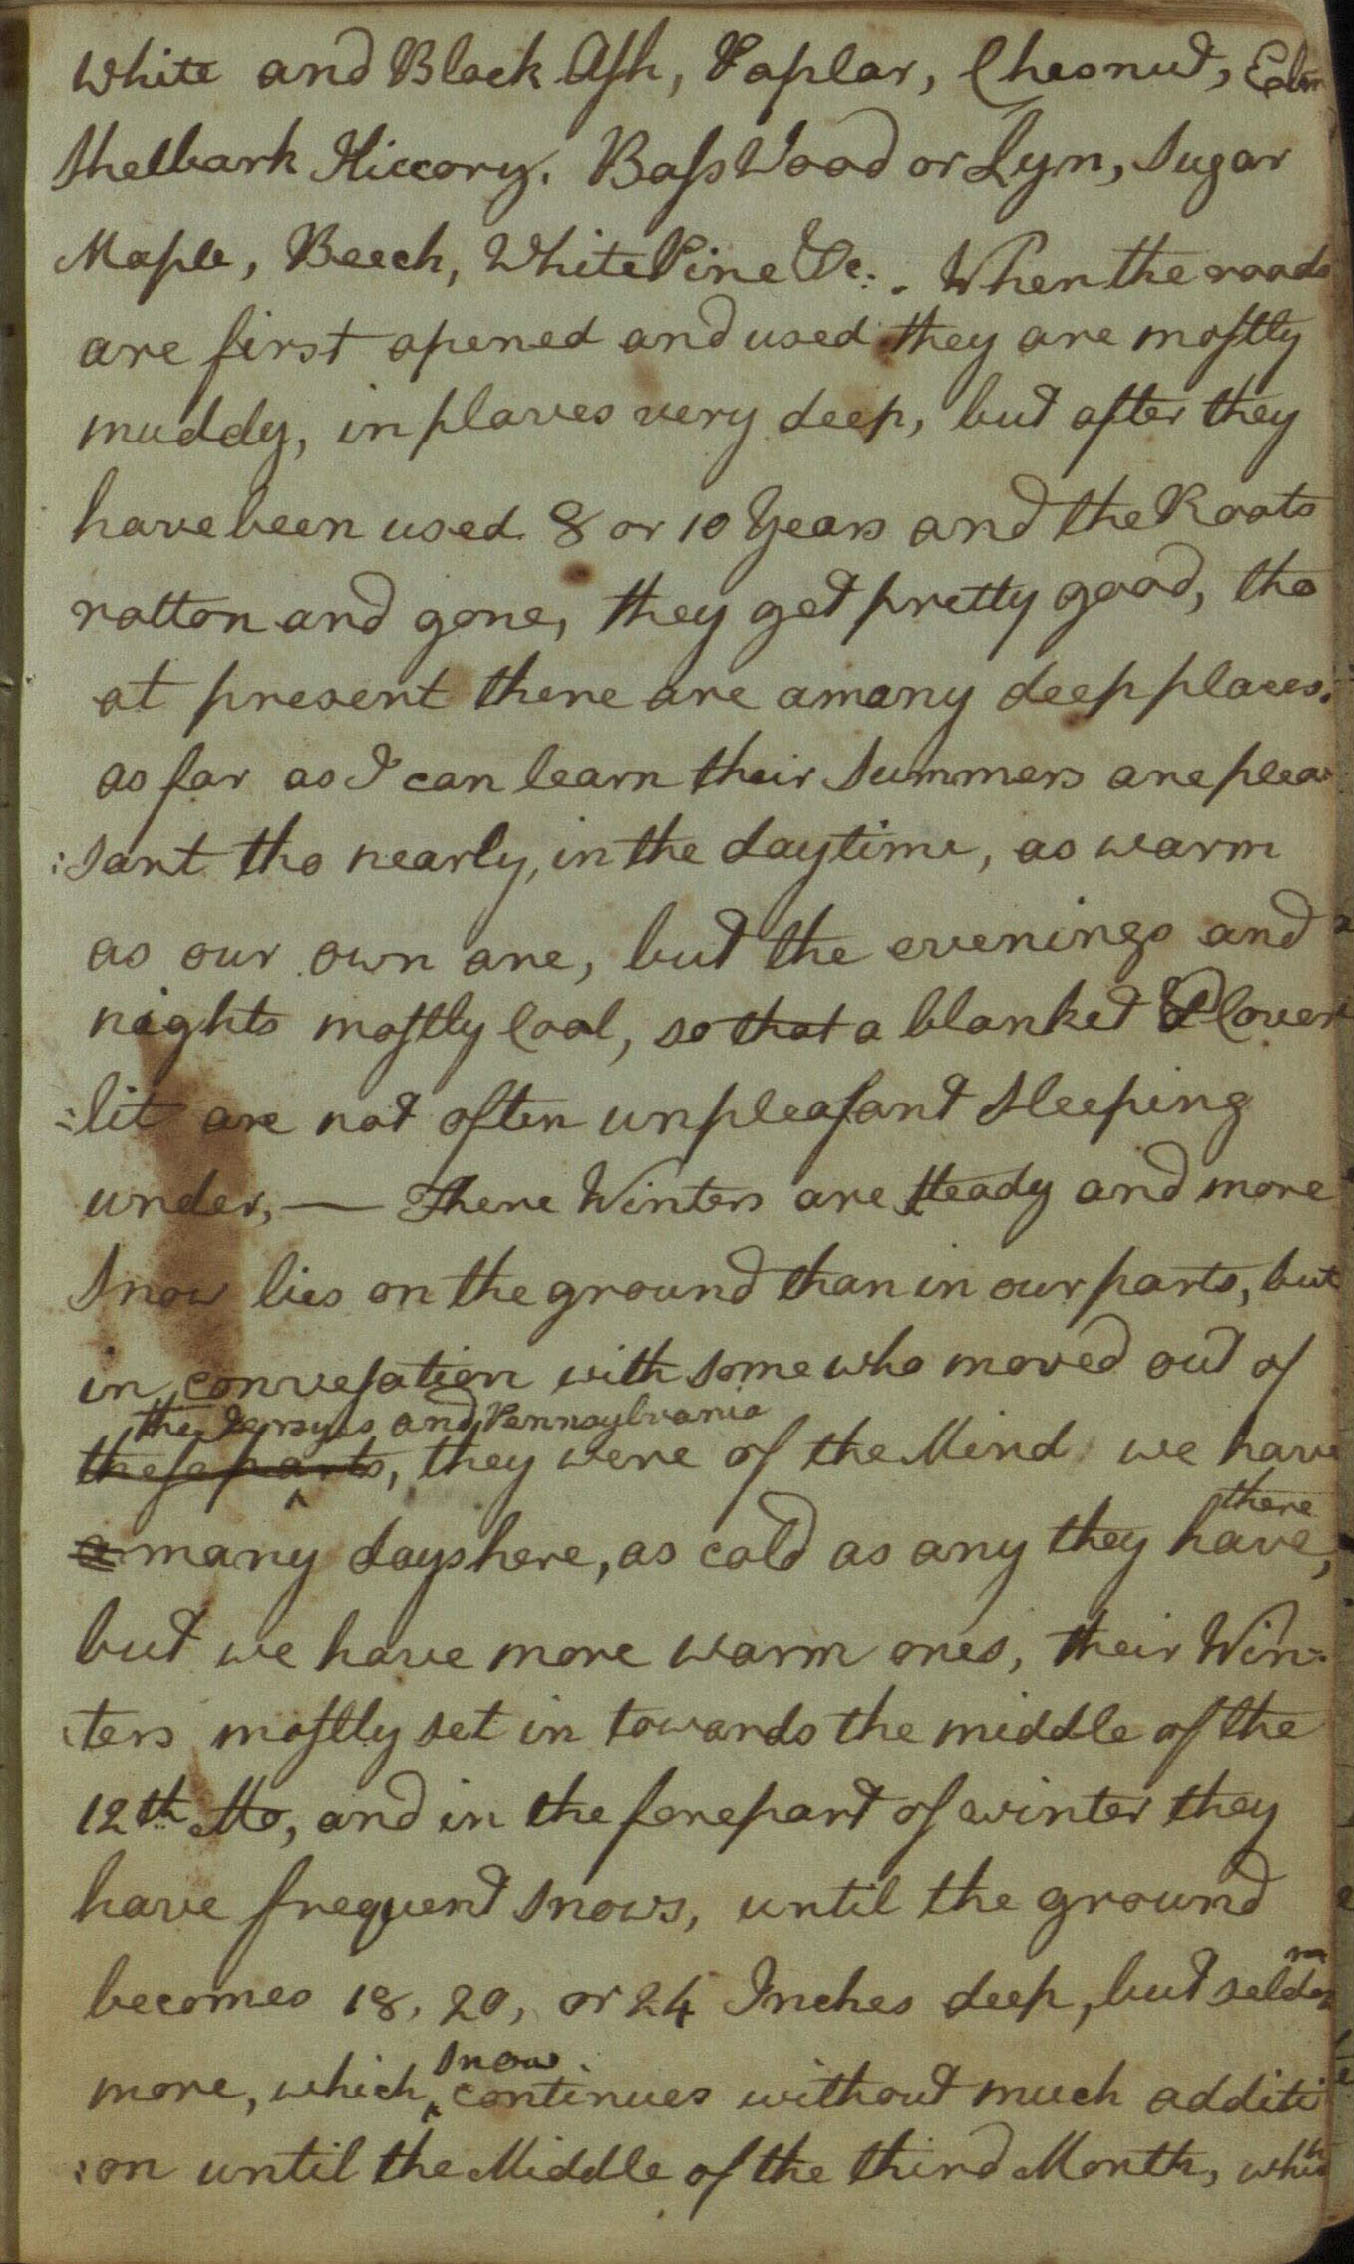 White and Black Ash, Poplar, Chesnut, Elm
Shelbark Hiccory. Bass Wood or Lyn, Sugar
Maple, Beech, White Pine &c. . When the roads
are first opened and used they are mostly
muddy, in places very deep, but after they
have been used 8 or 10 Years and the Roots
rotton and gone, they get pretty good, tho
at present there are amany deep places.
as far as I can learn their Summers are plea
:sant tho nearly, in the daytime, as warm
as our own are, but the evenings and
nights mostly Cool, so that a blanket & Cover
:lit are not often unpleasant Sleeping
under, — There Winters are steady and more
Snow lies on the ground than in our parts, but
in convesation with some who moved out of
the Jersyes and Pennsylvania
these parts, they were of the Mind we have
there
a many days here, as cold as any they have,
but we have more warm ones, their Win:
:ters mostly set in towards the middle of the
12th Mo, and in the forepart of winter they
have frequent snows, until the ground
becomes 18, 20, or 24 Inches deep, but seldom
snow
more, which continues without much additi
:on until the Middle of the third Month, which